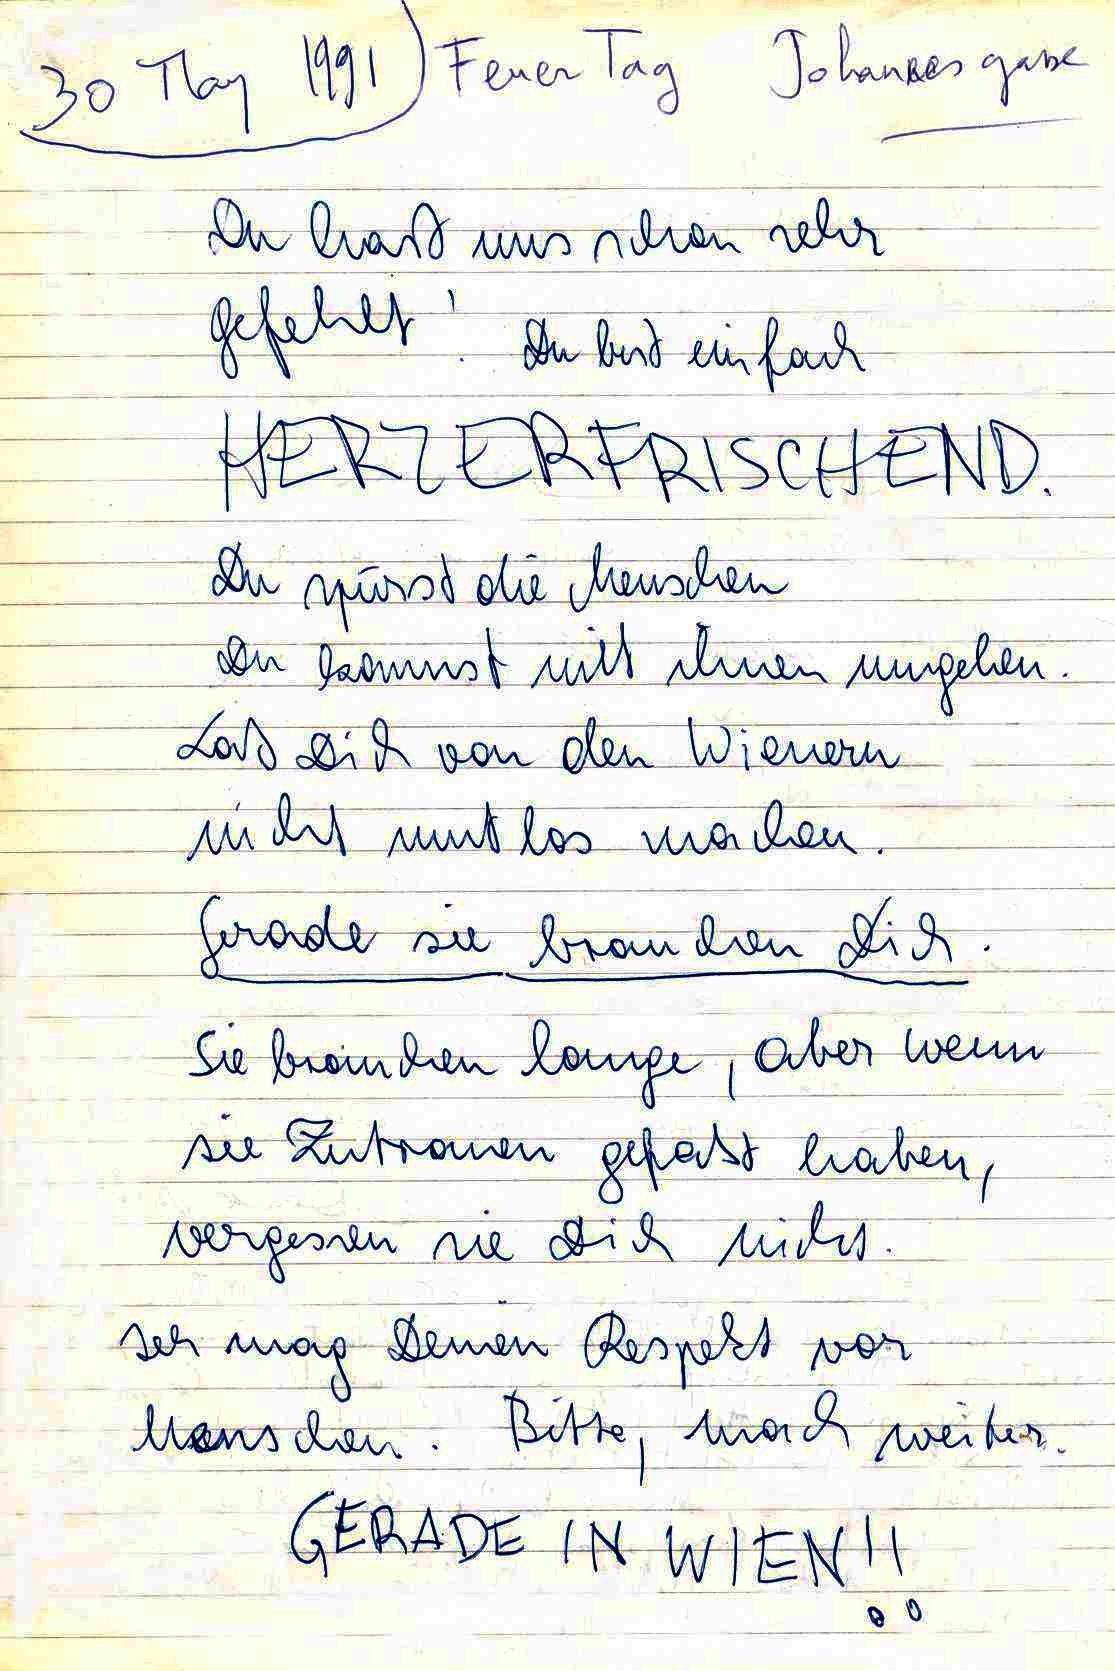 30 May 1991 Feuer Tag Johannesgasse
Du hast uns schon sehr
gefehlt! Du bist einfach
HERZERFRISCHEND.
Du spürst die Menschen
Du kannst mit ihnen umgehen.
Laß Dich von den Wienern
nicht mutlos machen.
Gerade sie brauchen Dich.
Sie brauchen lange, aber wenn
sie Zutrauen gefaßt haben,
vergessen sie Dich nicht.
Ich mag Deinen Respekt vor
Menschen. Bitte, mach weiter.
GERADE IN WIEN!!